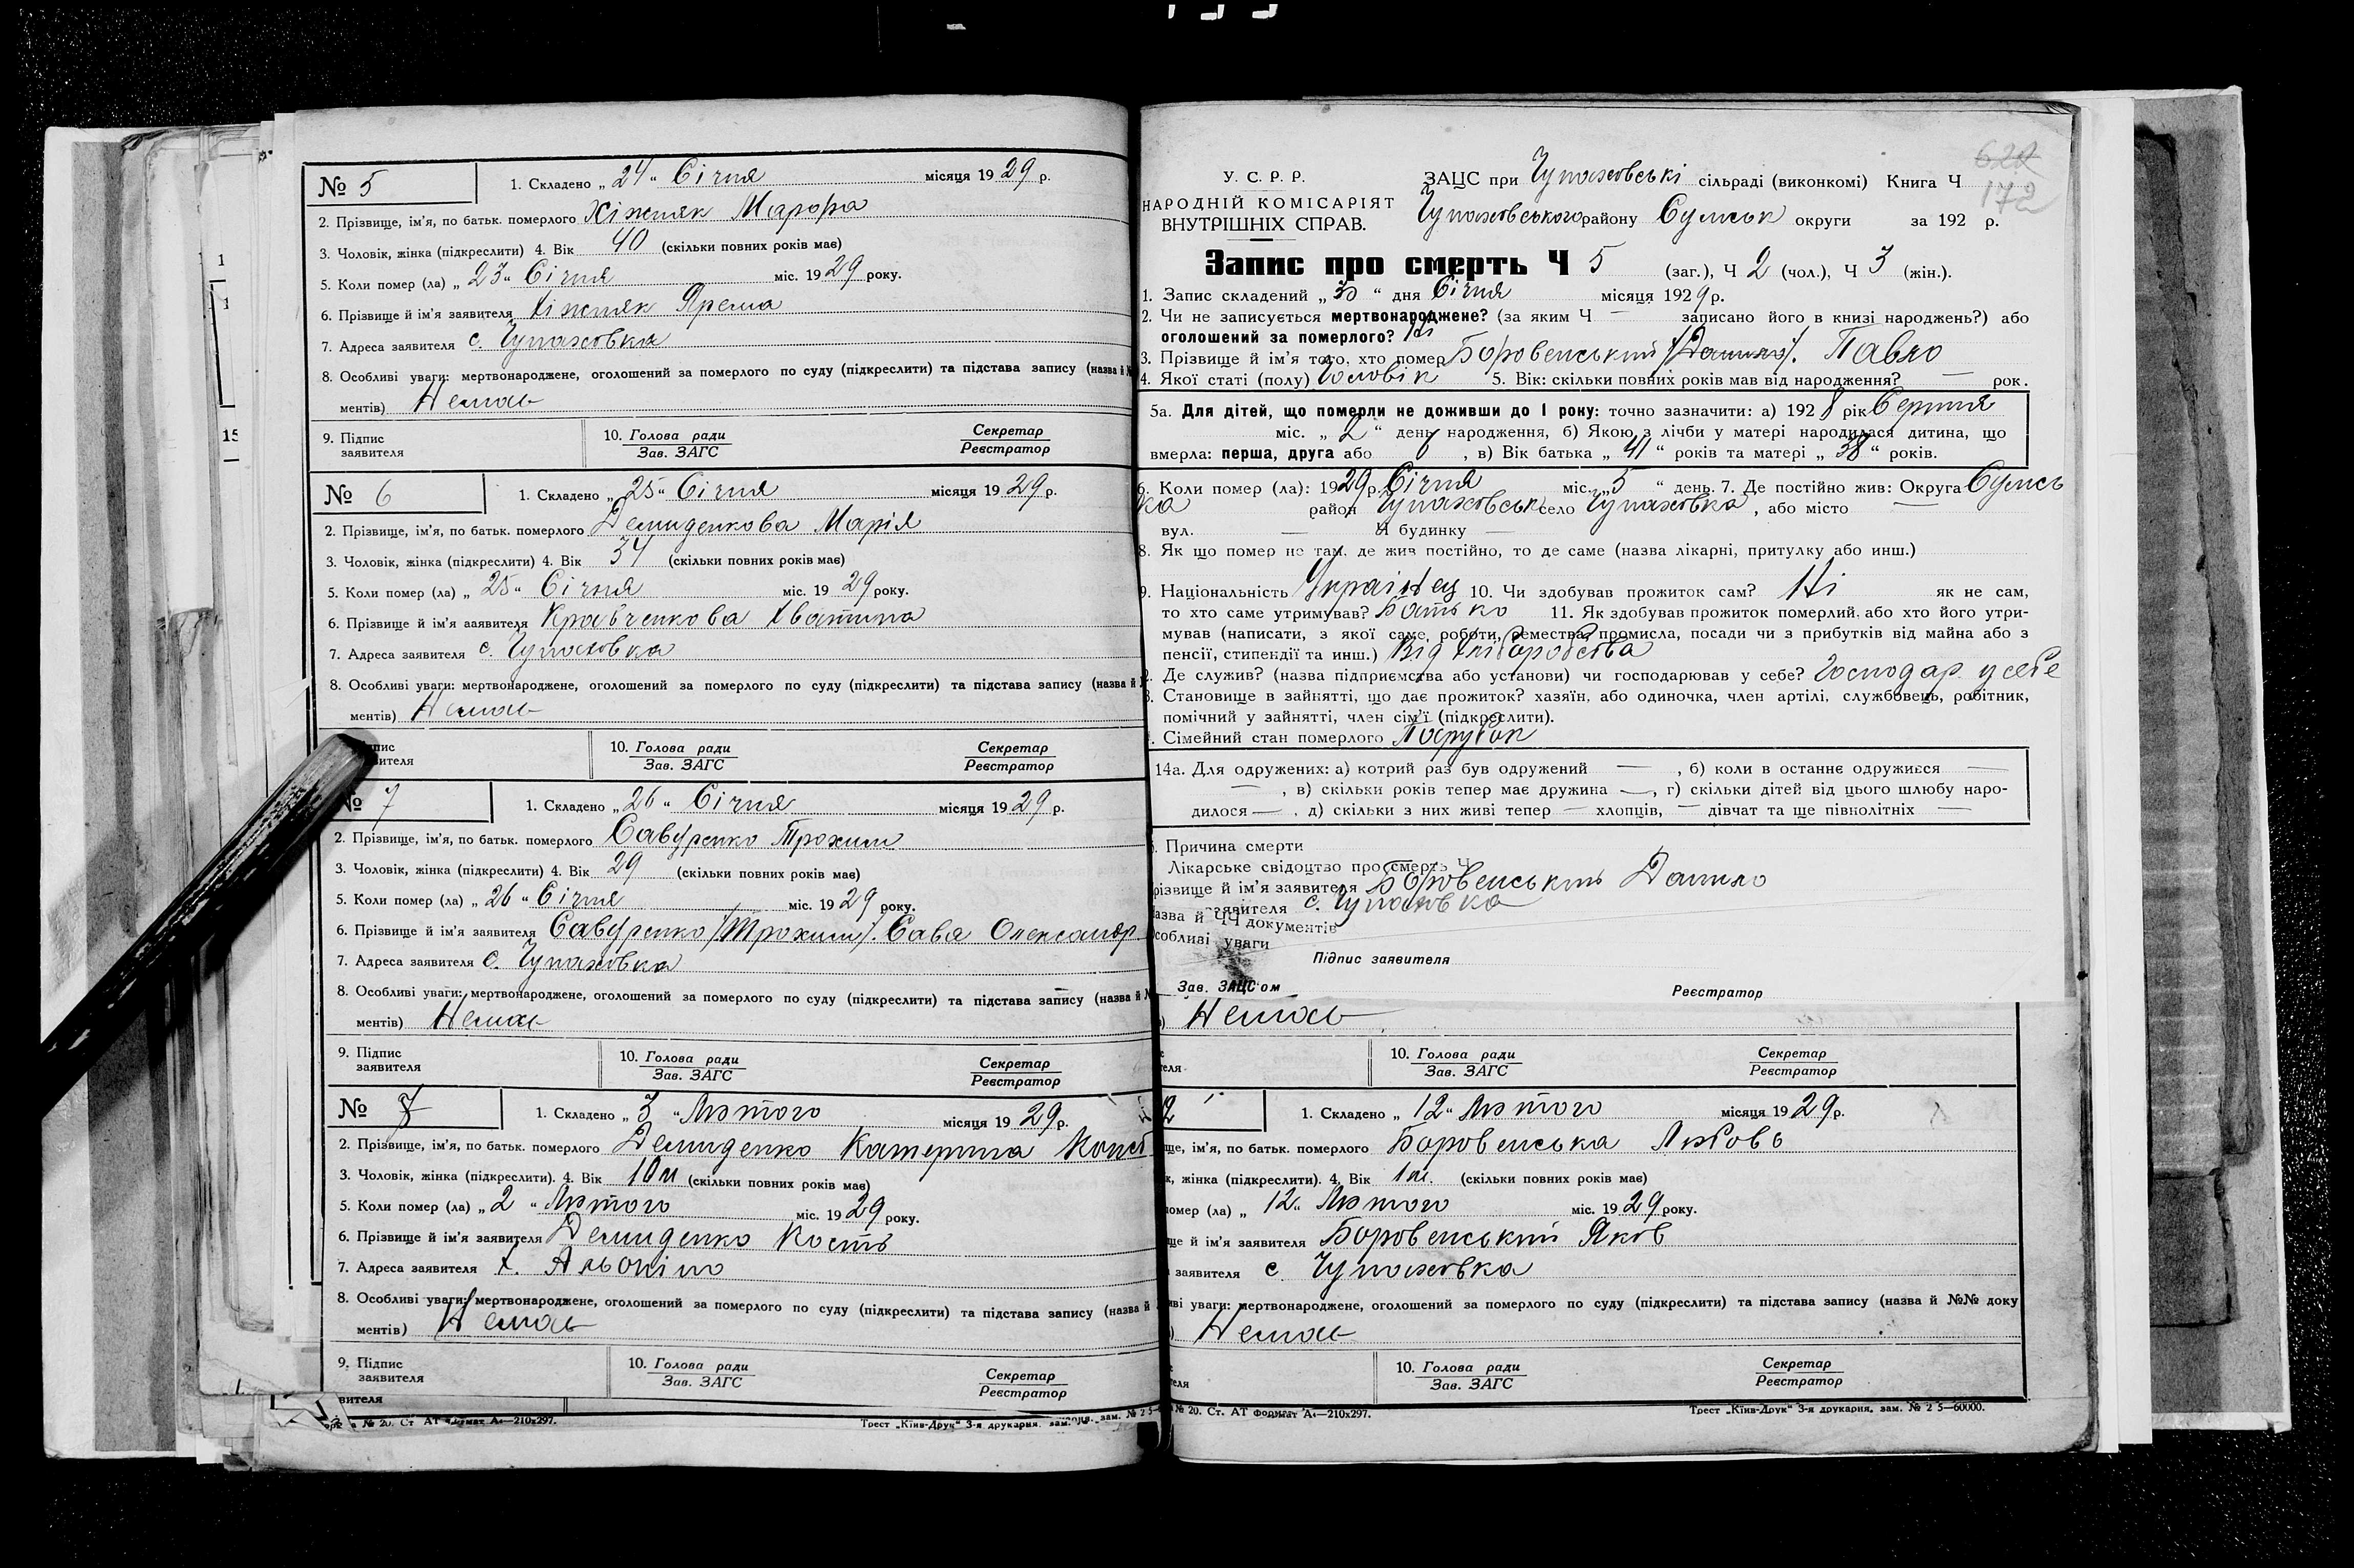 № 5
1. Складено „ 24 “ Січня місяця 1929 р.
2. Прізвище, ім'я, по батьк. померлого Хіжняк Марфа
3. Чоловік, жінка (підкреслити) 4. Вік 40 (скільки повних років має)
5. Коли помер (ла) „ 23 “ Січня міс. 1929 року.
6. Прізвище й ім'я заявителя Хіжняк Ярема
7. Адреса заявителя с. Чупаховка
8. Особливі уваги: мертвонароджене, оголошений за померлого по суду (підкреслити) та підстава запису (назва й
ментів) Немає
9. Підпис заявителя
10. Голова ради Зав. ЗАГС
Секретар Реєстратор
№ 6
1. Складено „ 25 “ Січня місяця 1929 р.
2. Прізвище, ім'я, по батьк. померлого Демиденкова Марія
3. Чоловік, жінка (підкреслити) 4. Вік 34 (скільки повних років має)
5. Коли помер (ла) „ 25 “ Січня міс. 1929 року.
6. Прізвище й ім'я заявителя Кравченкова
7. Адреса заявителя с. Чупаховка
8. Особливі уваги: мертвонароджене, оголошений за померлого по суду (підкреслити) та підстава запису (назва й
ментів) Немає
10. Голова ради Зав. ЗАГС
Секретар Реєстратор
№ 7
1. Складено „ 26 “ Січня місяця 1929 р.
2. Прізвище, ім'я, по батьк. померлого Савуренко Трохим
3. Чоловік, жінка (підкреслити) 4. Вік 29 (скільки повних років має)
5. Коли помер (ла) „ 26 “ Січня міс. 1929 року.
6. Прізвище й ім'я заявителя Савуренко /Трохим/. Сава Олександр
7. Адреса заявителя с. Чупаховка
8. Особливі уваги: мертвонароджене, оголошений за померлого по суду (підкреслити) та підстава запису (назва й
ментів) Немає
9. Підпис заявителя
10. Голова ради Зав. ЗАГС
Секретар Реєстратор
№
1. Складено „ 3 “ Лютого місяця 1929 р.
2. Прізвище, ім'я, по батьк. померлого Демиденко Катерина Конст
3. Чоловік, жінка (підкреслити). 4. Вік 10м (скільки повних років має)
5. Коли помер (ла) „ 2 “ Лютого міс. 1929 року.
6. Прізвище й ім'я заявителя Демиденко Кость
7. Адреса заявителя х.
8. Особливі уваги: мертвонароджене, оголошений за померлого по суду (підкреслити) та підстава запису (назва й
ментів) Немає
9. Підпис заявителя
10. Голова ради Зав. ЗАГС
Секретар Реєстратор
вителя
№ 20. Ст. АТ Формат А4—210х297.
Трест „Київ-Друк“ 3-я друкарня. зам.
622
172
У. С. Р. Р.
НАРОДНІЙ КОМІСАРІЯТ
ВНУТРІШНІХ СПРАВ.
ЗАЦС при Чупаховські сільраді (виконкомі) Книга Ч
Чупаховського району Сумськ округи за 192 р.
Запис про смерть Ч 5 (заг.), Ч 2 (чол.), Ч 3 (жін.).
1. Запис складений „ 30 “ дня Січня місяця 1929 р.
2. Чи не записується мертвонароджене? (за яким Ч — записано його в книзі народжень?) або
оголошений за померлого? Ні
3. Прізвище й ім'я того, хто помер Боровенський /Данило/. Павло
4. Якої статі (полу) Чоловік 5. Вік: скільки повних років мав від народження? — рок.
5а. Для дітей, що померли не доживши до 1 року: точно зазначити: а) 1928 рік Серпня
міс. „ 2 “ день народження, б) Якою з лічби у матері народилася дитина, що
вмерла: перша, друга або , в) Вік батька „ 41 “ років та матері „ 38 “ років.
6. Коли помер (ла): 1929 р. Січня міс. „ 5 “ день. 7. Де постійно жив: Округа Сумсь
ка район Чупаховськ село Чупаховка, або місто —
вул. — Ч будинку —
8. Як що помер не там, де жив постійно, то де саме (назва лікарні, притулку або инш.)
9. Національність Українец 10. Чи здобував прожиток сам? Ні як не сам,
то хто саме утримував? Батько 11. Як здобував прожиток померлий, або хто його утри-
мував (написати, з якої саме, роботи, ремества, промисла, посади чи з прибутків від майна або з
пенсії, стипендії та инш.) Від хліборобства
2. Де служив? (назва підприємства або установи) чи господарював у себе? Господар. у себе
3. Становище в зайнятті, що дає прожиток? хазяїн, або одиночка, член артілі, службовець, робітник,
помічний у зайнятті, член сім'ї (підкреслити).
. Сімейний стан померлого Парубок
14а. Для одружених: а) котрий раз був одружений — , б) коли в останнє одружився —
— , в) скільки років тепер має дружина —, г) скільки дітей від цього шлюбу наро-
дилося — , д) скільки з них живі тепер — хлопців, — дівчат та ще півколітніх —
. Причина смерти
Лікарське свідоцтво про смерть Ч
різвище й ім'я заявителя Боровенський Данило
заявителя с. Чупаховка
азва й ЧЧ документів
собливі уваги
Підпис заявителя
Зав. ЗАЦС'ом
Реєстратор
) Немає
теля
10. Голова ради Зав. ЗАГС
Секретар Реєстратор
2
1. Складено „ 12 “ Лютого місяця 1929 р.
ще, ім'я, по батьк. померлого Боровенська Любовь
к, жінка (підкреслити). 4. Вік 1м. (скільки повних років має)
омер (ла) „ 12 “ Лютого міс. 1929 року.
ще й ім'я заявителя Боровенський Яков
заявителя с. Чупаховка
иві уваги: мертвонароджене, оголошений за померлого по суду (підкреслити) та підстава запису (назва й №№ доку
) Немає
теля
10. Голова ради Зав. ЗАГС
Секретар Реєстратор
№ 20. Ст. АТ Формат А4—210х297.
Трест „Київ-Друк“ 3-я друкарня, зам. № 2 5—60000.